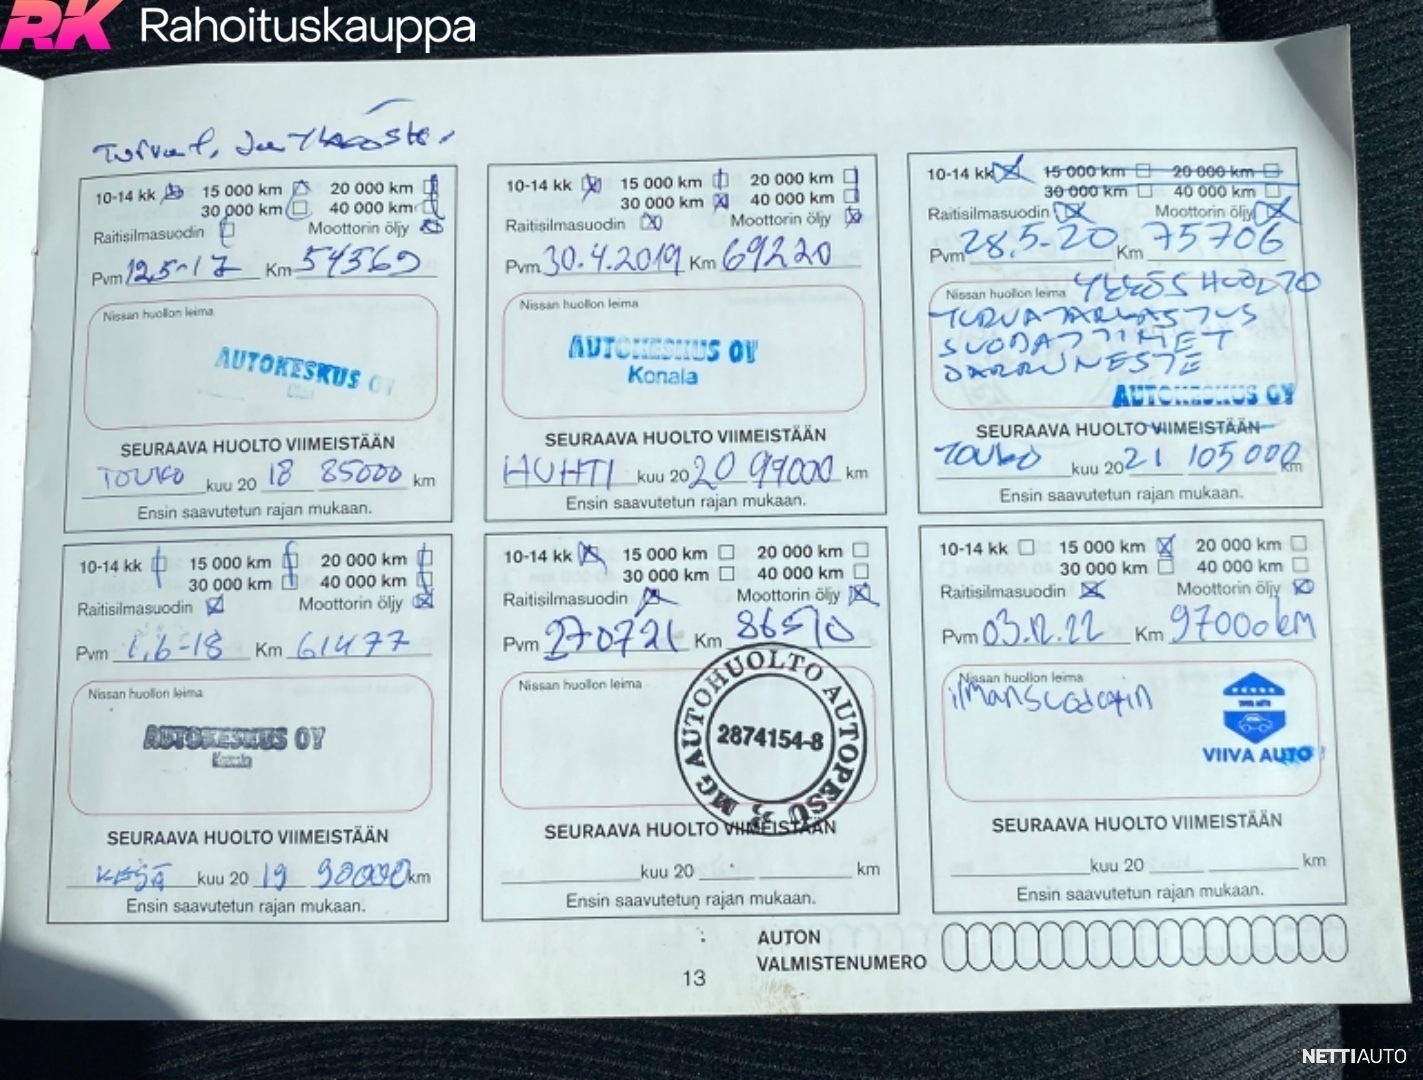 RK Rahoituskauppa
10-14 kk 15 000 km 20 000 km
30 000 km 40 000 km
Raitisilmasuodin Moottorin öljy
Pvm 12.5-17 Km 54569
Nissan huollon leima
AUTOKESKUS OY
SEURAAVA HUOLTO VIIMEISTÄÄN
TOUKO kuu 20 18 85000 km
Ensin saavutetun rajan mukaan.
10-14 kk 15 000 km 20 000 km
30 000 km 40 000 km
Raitisilmasuodin Moottorin öljy
Pvm 30.4.2019 Km 69220
Nissan huollon leima
AUTOKESKUS OY
Konala
SEURAAVA HUOLTO VIIMEISTÄÄN
HUHTI kuu 20 20 99000 km
Ensin saavutetun rajan mukaan.
10-14 kk 15 000 km 20 000 km
30 000 km 40 000 km
Raitisilmasuodin Moottorin öljy
Pvm 28.5-20 Km 75706
Nissan huollon leima YKKÖSHUOLTO
TURVATARKASTUS
SUODATTIMET
JARRUNESTE
AUTOKESKUS OY
SEURAAVA HUOLTO VIIMEISTÄÄN
TOUKO kuu 20 21 105 000 km
Ensin saavutetun rajan mukaan.
10-14 kk 15 000 km 20 000 km
30 000 km 40 000 km
Raitisilmasuodin Moottorin öljy
Pvm 1.6-18 Km 61477
Nissan huollon leima
AUTOKESKUS OY
Konala
SEURAAVA HUOLTO VIIMEISTÄÄN
KESÄ kuu 20 19 90000 km
Ensin saavutetun rajan mukaan.
10-14 kk 15 000 km 20 000 km
30 000 km 40 000 km
Raitisilmasuodin Moottorin öljy
Pvm 270721 Km 86510
Nissan huollon leima
MG AUTOHUOLTO AUTOPESU
2874154-8
SEURAAVA HUOLTO VIIMEISTÄÄN
kuu 20 km
Ensin saavutetun rajan mukaan.
10-14 kk 15 000 km 20 000 km
30 000 km 40 000 km
Raitisilmasuodin Moottorin öljy
Pvm 03.12.22 Km 97000km
Nissan huollon leima
ilmansuodatin
VIIVA AUTO
SEURAAVA HUOLTO VIIMEISTÄÄN
kuu 20 km
Ensin saavutetun rajan mukaan.
AUTON
VALMISTENUMERO
13
NETTIAUTO